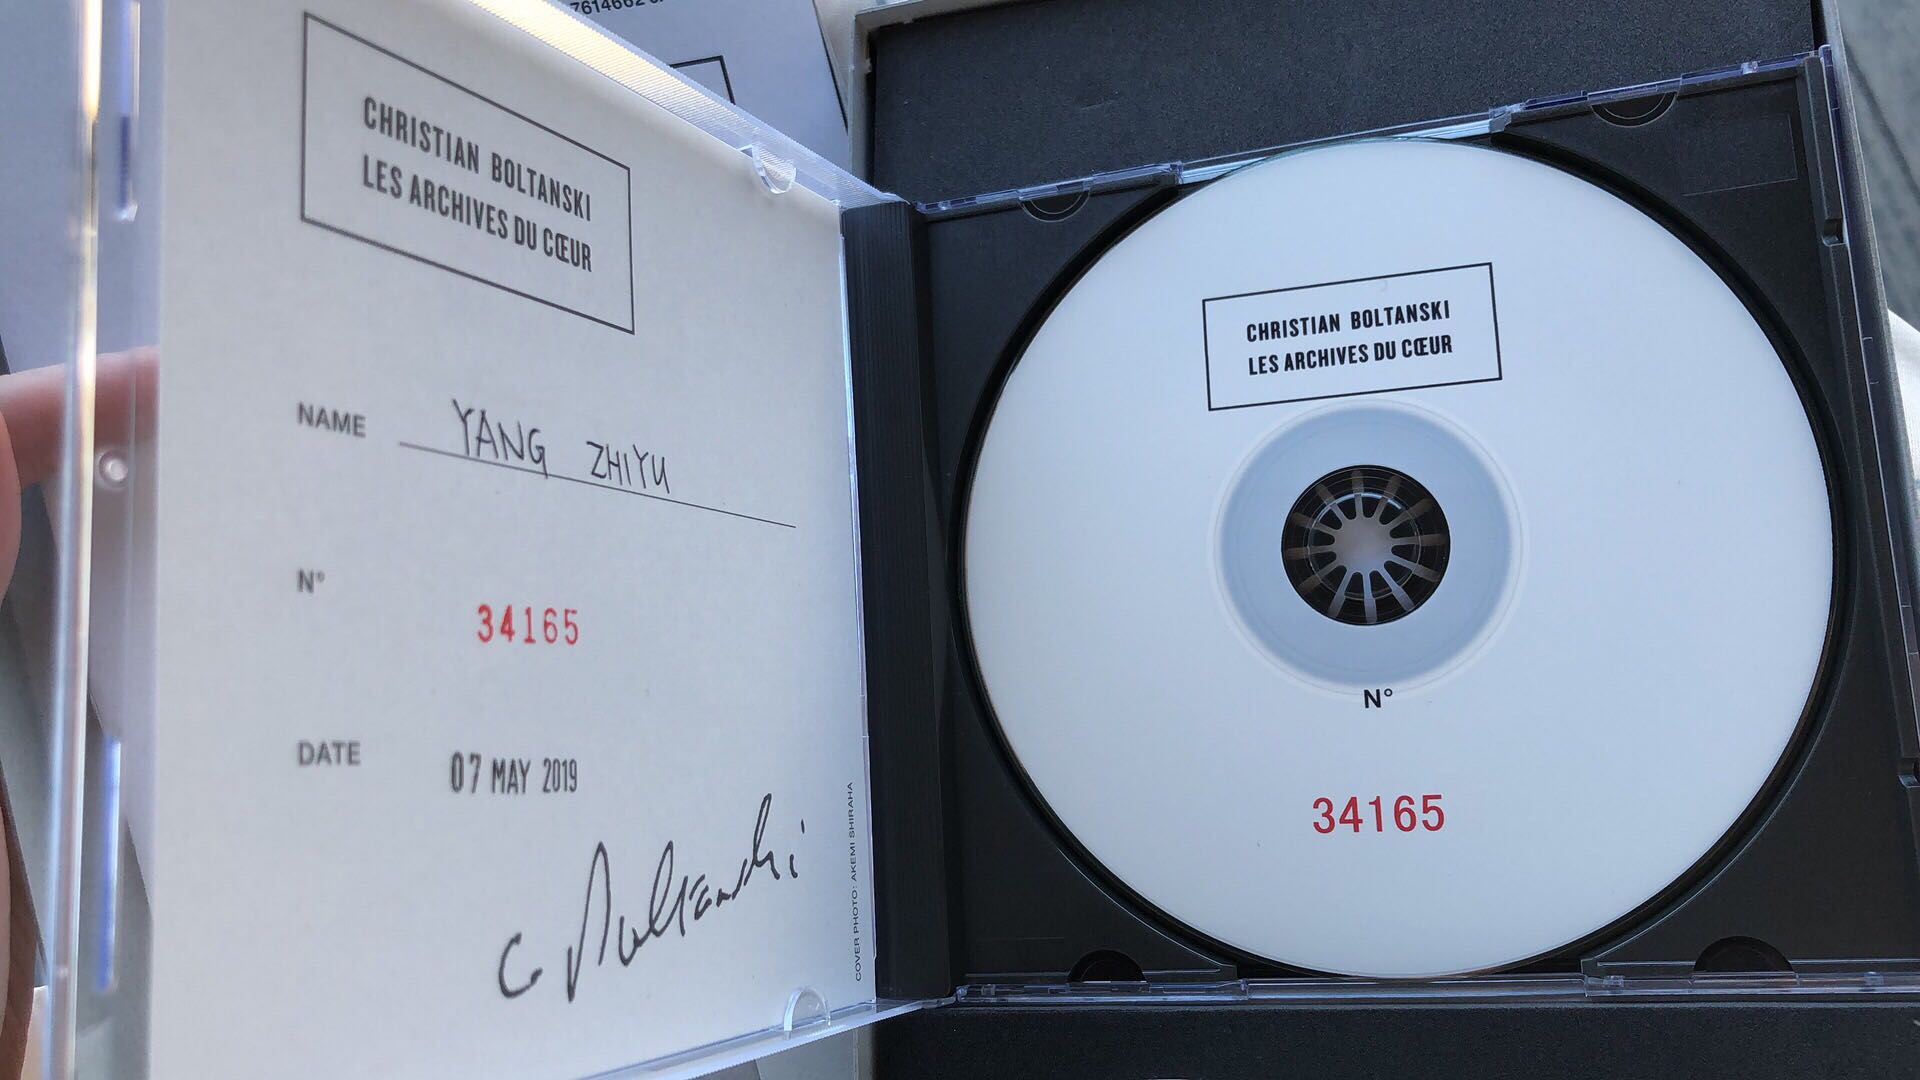 CHRISTIAN BOLTANSKI
LES ARCHIVES DU CŒUR
NAME YANG ZHIYU
N° 34165
DATE 07 MAY 2019
C Boltanski
COVER PHOTO : AKEMI SHIRAHA
CHRISTIAN BOLTANSKI
LES ARCHIVES DU CŒUR
N°
34165